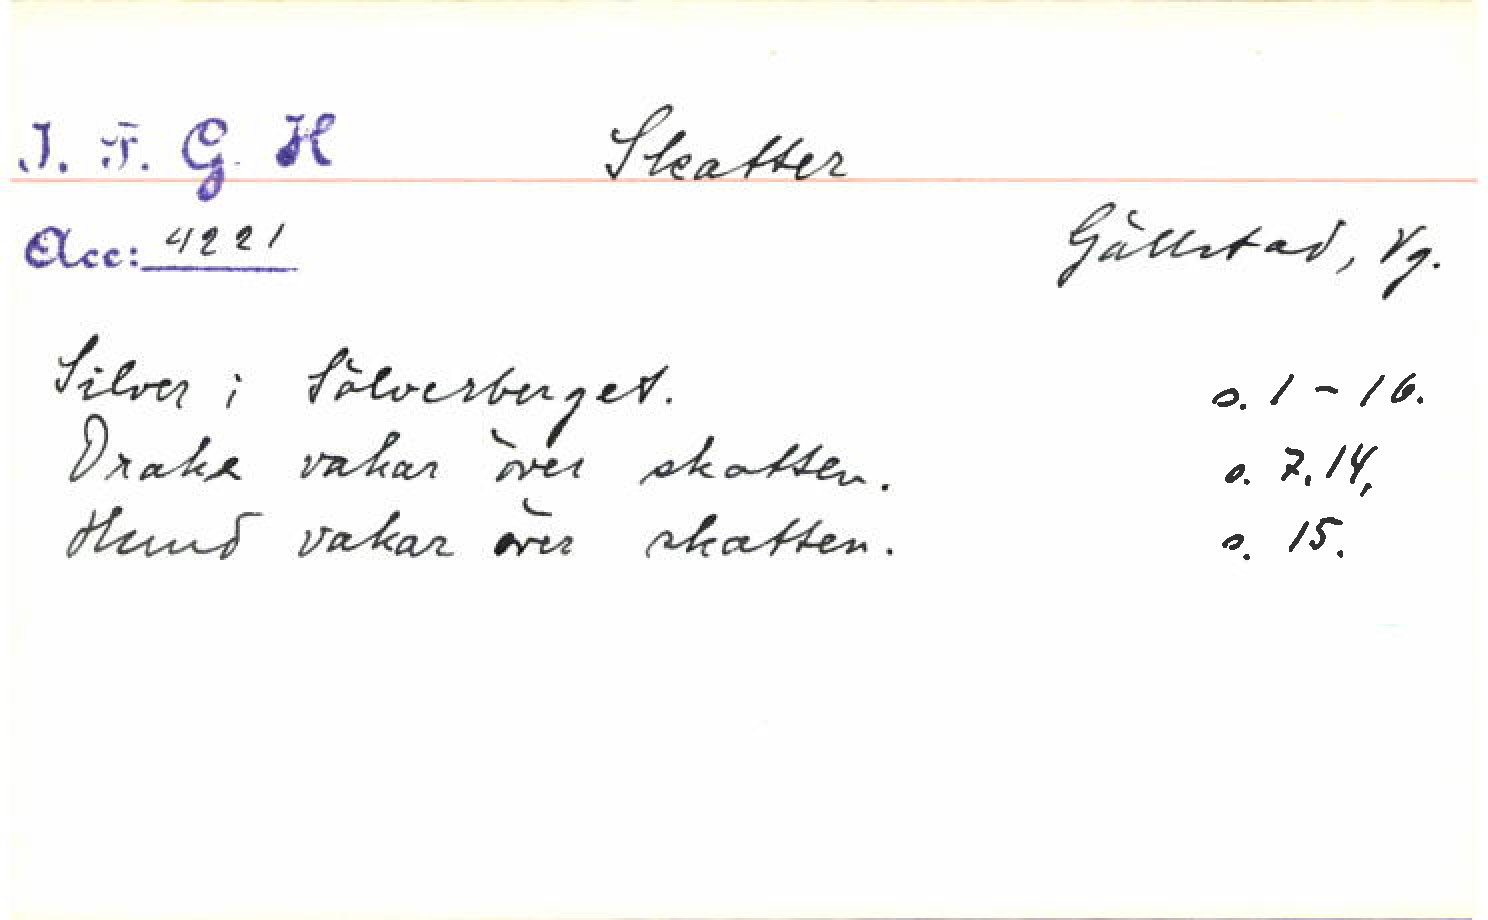 I. F. G. H Skatter
Acc: 4221
Gällstad, Vg.
Silver i Sölverberget. s. 1 - 16.
Drake vakar över skatten. s. 7, 14,
Hund vakar över skatten. s. 15.